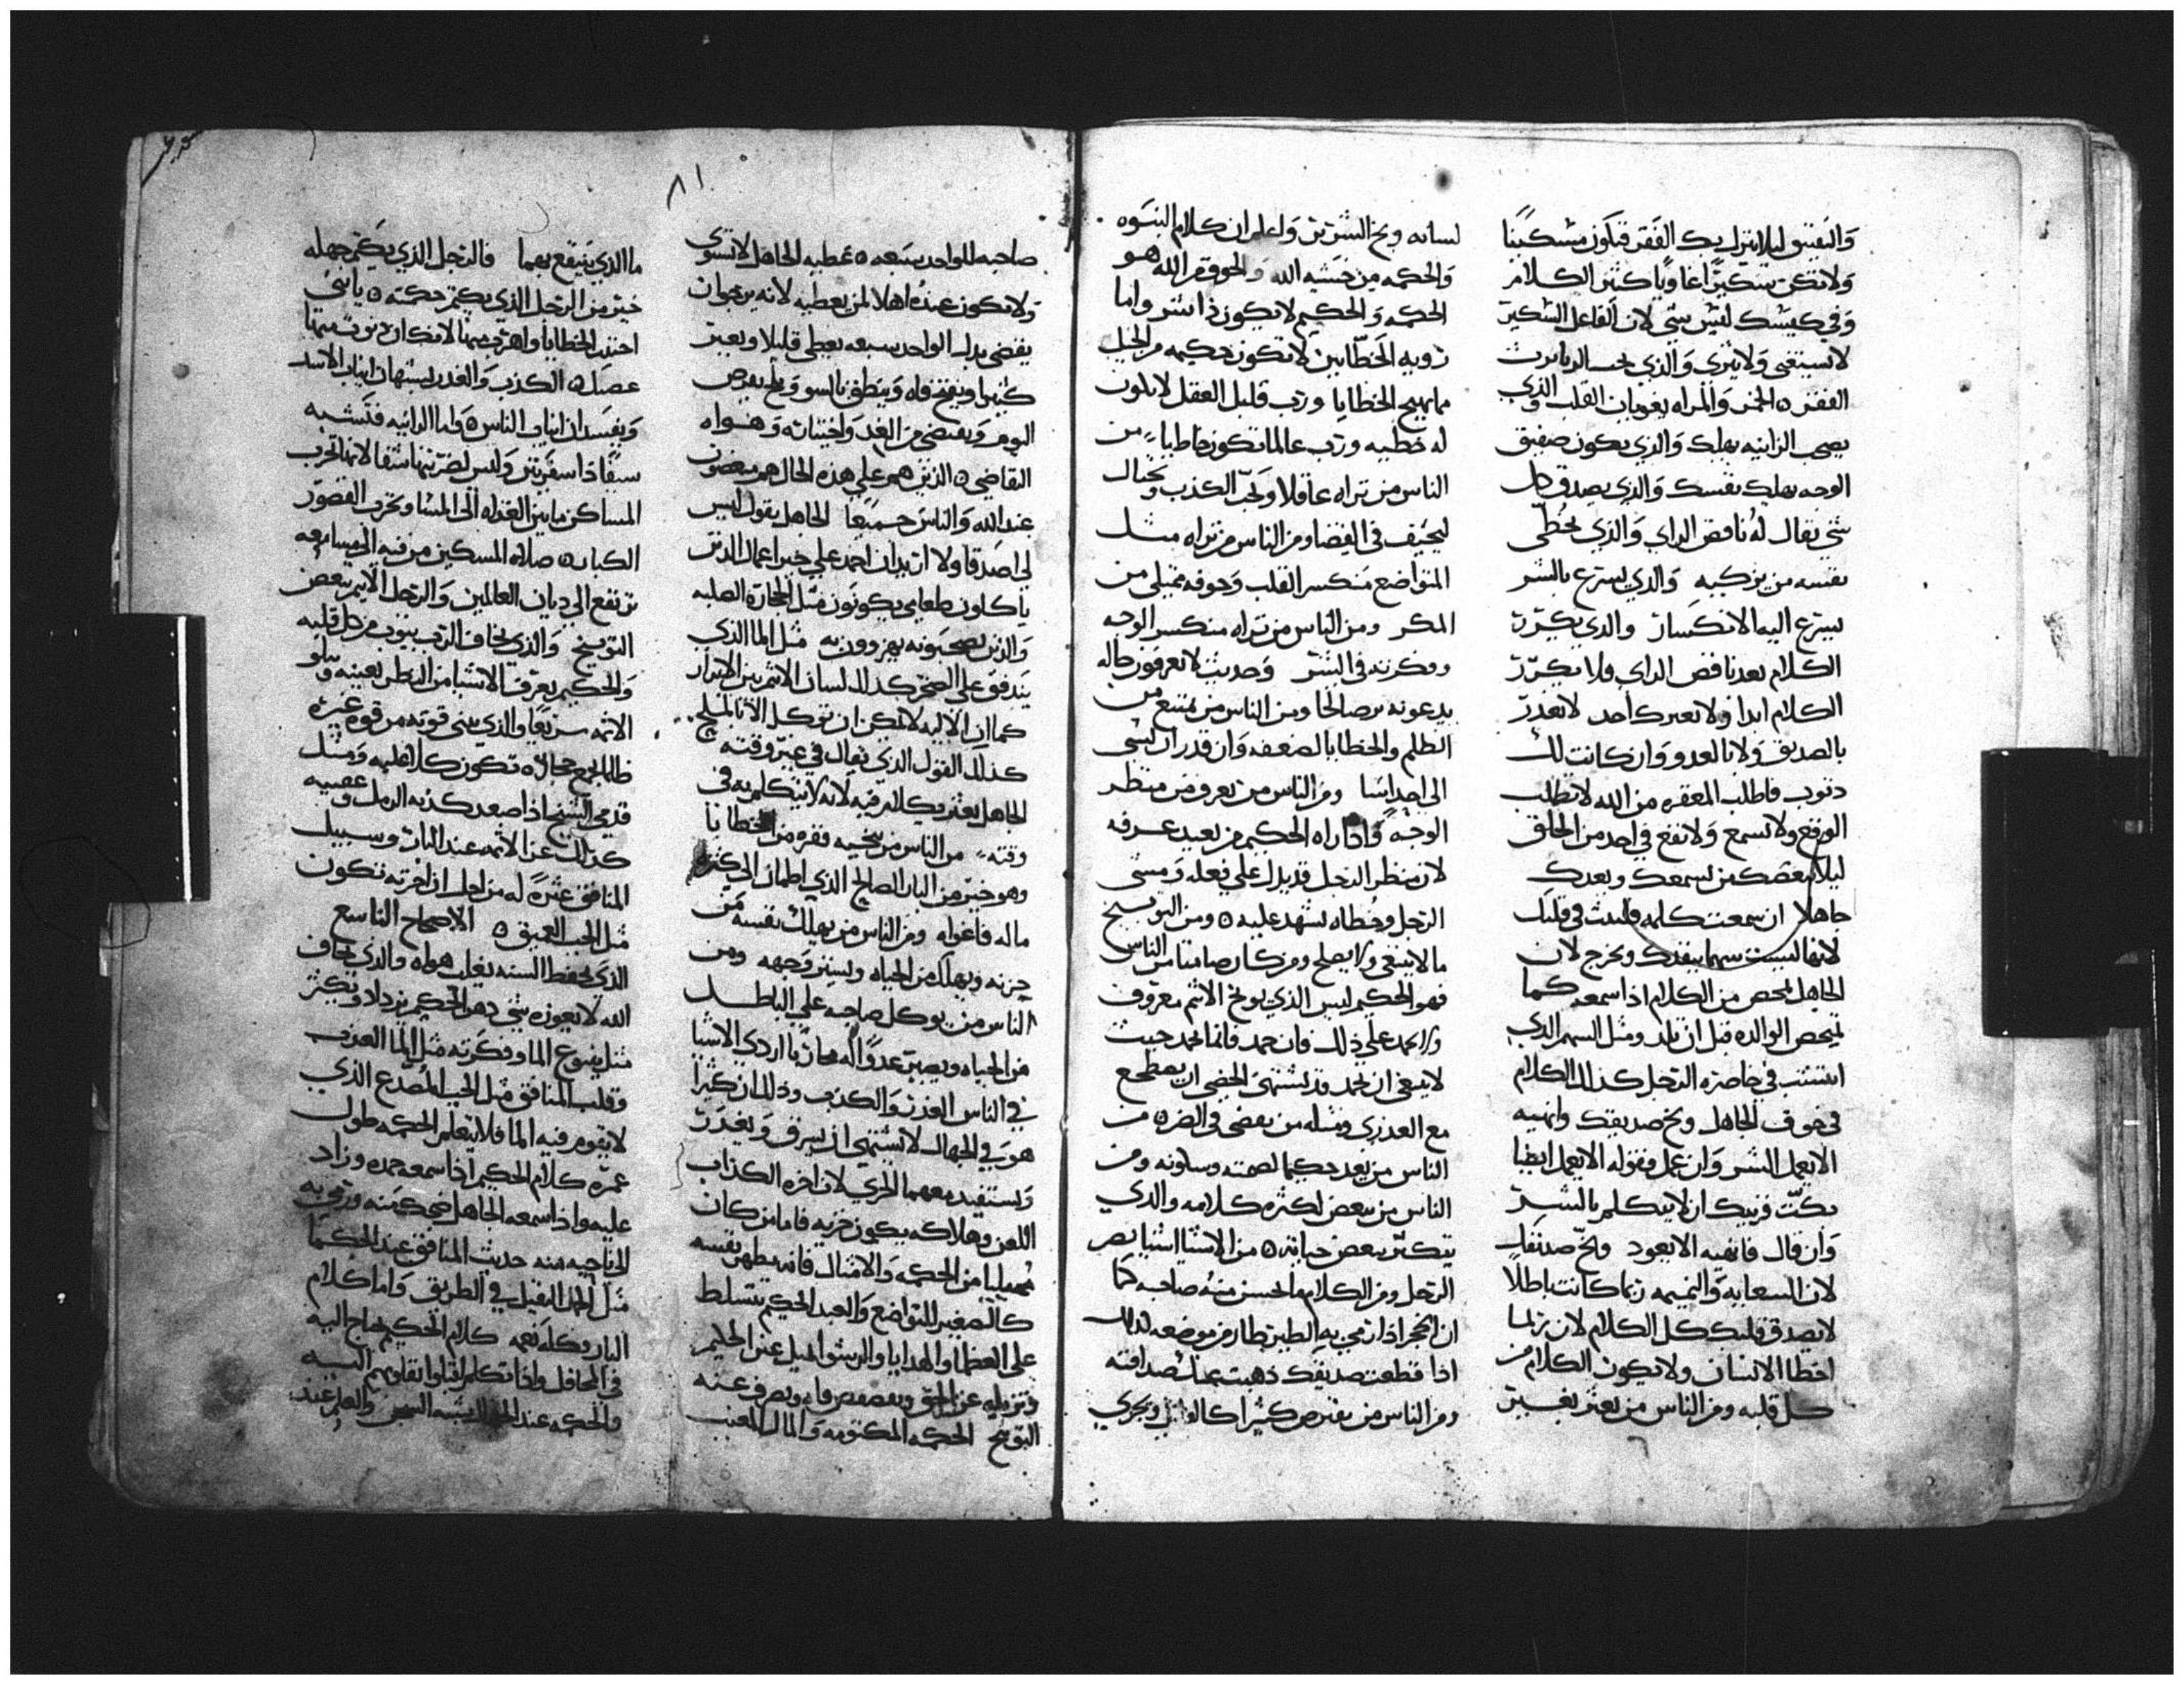 والتفتيق ليلا ينزل بك الفقر فتكون مسكينا
ولا تكن سكيرا غاويا كثير الكلام
وفي كيسك ليس شي لان الفاعل السكير
لا يستغني ولا يثري والذي يحب الزنا يرث
الفقر ٥ الخمر والمراه يغويان القلب والذي
يصحب الزانيه يهلك والذي يكون صفيق
الوجه يهلك نفسك والذي يصدق كل
شي يقال له ناقص الراي والذي يخطي
نفسه من يزكيه والذي يسرع بالشر
يسرع اليه الانكسار والذي يكرر
الكلام يعد ناقص الراي فلا تكرر
الكلام ابدا ولا يعيرك احد لا تغدر
بالصديق ولا بالعدو وان كانت لك
دنوب فاطلب المغفره من الله لا تطلب
الوقع ولا تسمع ولا تقع في احد من الخلق
ليلا يبغضك من يسمعك ويعدك
جاهلا ان سمعت كلمه فلتمت في قلبك
لانها ليست سهما ينفدك ويخرج لان
الجاهل يمحص من الكلام اذا سمعه كما
تمحص الوالده قبل ان تلد ومثل السهم الذي
انتشب في خاصرة الرجل كذلك الكلام
في جوف الجاهل وبخ صديقك وانهيه
الا يعمل الشر وان عمل فقوله الا يعمل ايضا
بكت قرنيك ان لا يتكلم بالشر
وان قال فانهيه الا يعود وبخ صديقك
لان السعايه والنميمه ربما كانت باطلا
لا تصدق قلبك كل الكلام لان ربما
اخطا الانسان ولا يكون الكلام من
كل قلبه ومن الناس من يعثر بغير
لسانه وبخ الشرير واعلم ان كلام النبوه
والحكمه من خشيه الله والخوف من الله هو
الحكمه والحكيم لا يكون ذا شر واما
رويه الخطايين لا تكون حكيمه من الحيل
مما يهيج الخطايا ورب قليل العقل لا يكون
له خطيه ورب عالما تكون خاطيا ومن
الناس من تراه عاقلا ويحب الكذب ويحتال
ليحيف في القضا ومن الناس من تراه مثل
المتواضع منكسر القلب وجوفه ممتلي من
المكر ومن الناس من تراه منكسر الوجه
وفكرته في الشر وحديث لا يعرفون حاله
يدعونه برصالحا ومن الناس من يمتنع من
الظلم والخطايا لضعفه وان قدر ان يسي
الى احد اسا ومن الناس من تعرف من منظر
الوجه فاذا راه الحكيم من بعيد عرفه
لان منظر الرجل قد يدل على فعله ومشي
الرجل وخطاه تشهد عليه ٥ ومن التوبيخ
ما لا ينبغي ولا يصلح ومن كان صامتا من الناس
فهو الحكيم ليس الذي يوبخ الاثم معروف
ولا يحمد على ذلك فان حمد فانما يحمد حيث
لا ينبغي ان يحمد قد يشتهي الخصي ان يضطجع
مع العدري ومثله من يقضي في الضره من
الناس من يعد حكيما لصمته وسكونه ومن
الناس من يبغض لكثره كلامه والذي
يتكبر يبغض حياته ٥ من الاشيا اشيا يضر
الرجل ومن الكلام ما يحسن منه صاحبه كما
ان الحجر اذا رمي به الطير تطار من موضعه كذلك
اذا قطعت صديقك ذهبت عنك صداقته
ومن الناس من يقترض كثيرا ويجري
٨١
صاحبه للواحد سبعه ٥ عطيه الجاهل لا تسوي
ولا تكون عنده اهلا لمن يعطيه لانه يرجو ان
يقضي بدل الواحد سبعه يعطي قليلا ويعير
كثيرا ويفتح فاه وينطق بالسو ويلح يقرض
اليوم ويقتضي من الغد واحتياته وهواه
التقاضي ٥ الذين هم على هذه الحال هم مبغضون
عند الله والناس جميعا الجاهل يقول ليس
لي اصدقا ولا اريد ان احمد على خير اعمال الذين
ياكلون طعامي يكونون مثل الحجارة الصلبه
والذين يصحبونه يهزوون به مثل الما الذي
يتدفق على الصخر كذلك لسان الاثم بين الابرار
كما ان الاليه لا يمكن ان توكل الا بالملح
كذلك القول الذي يقال في غير وقته
الجاهل يعثر بكلام فيه لانه لا يتكلم به في
وقته من الناس من ينجيه فقره من الخطايا
وهو خير من البار الصالح الذي اطمان الى كثرة
ماله فاغواه ومن الناس من يهلك نفسه من
حزنه ويهلك من الحياه ويستر وجهه ومن
الناس من يوكل صاحبه على الباطل
من الحياه ويصير عدوا له مجانا اردي الاشيا
في الناس الغدر والكذب وذلك ان كثيرا
هو في الجهال لا تشتهي ان يسرق ويغدر
وتستفيد معهما الخزي لان اخرة الكذاب
اللعن وهلاكه يكون خزيه فاما من كان
ممتليا من الحكمه والامثال فانه يطهر نفسه
كالصغير للتواضع والعبد الحكيم يتسلط
على العظما والهدايا والرشوا تميل عين الحليم
وتزيله عن الحق ويعصص فاه ويصرف عنه
التوبيخ الحكمه المكتومه والمال المغيب
ما الذي ينتفع بهما فالرجل الذي يكتم جهله
خير من الرجل الذي يكتم حكمته ٥ يا بني
اجتنب الخطايا واهرب منها لانك ان دنوت منها
عضتك ٥ الكذب والغدر يشبهان انياب الاسد
ويفسدان انياب الناس ٥ واما الزانيه فتشبه
سيفا ذا سفرتين وليس لضربتها شفا لانها تخرب
المساكن ما بين الغداه الى المسا وتخرب القصور
الكبار ٥ صلاه المسكين من فيه الى مسامعه
ترتفع الى ديان العالمين والرجل الاثيم يبغض
التوبيخ والذي يخاف الرب يتوب من كل قلبه
والحكيم يعرف الاشيا من النظر بعينه ويبلو
الاثمه سريعا والذي يبني قوته من قوة غيره
ظالما يجمع حجاره تكون كلها عليه ومثل
قدمي الشيخ اذا صعد كدنه الرمل وعصبيه
كذلك عنا الاثمه عند النار وسبيل
المنافق عثرة له من اجل ان اخرته تكون
مثل الجب العميق ٥ الاصحاح التاسع
الذي يحفظ السنه يغلب هواه والذي يخاف
الله لا يعوزه شي دهن الحكيم يزداد ويكثر
مثل ينبوع الما وفكرته مثل الما العذب
وقلب المنافق مثل الجب المصدع الذي
لا يقوم فيه الما فلا يتعلم الحكمه طول
عمره كلام الحكيم اذا سمعه حمده وزاد
عليه واذا سمعه الجاهل ضحك منه ورمى به
الى ناحيه منه حديث المنافق عند الحكما
مثل الحمل الثقيل في الطريق واما كلام
البار وكله نعمه كلام الحكيم يحتاج اليه
في المحافل واذا تكلم اقبلوا بقلوبهم اليه
والحكمه عند الجاهل تشبه السجن والعلم عند